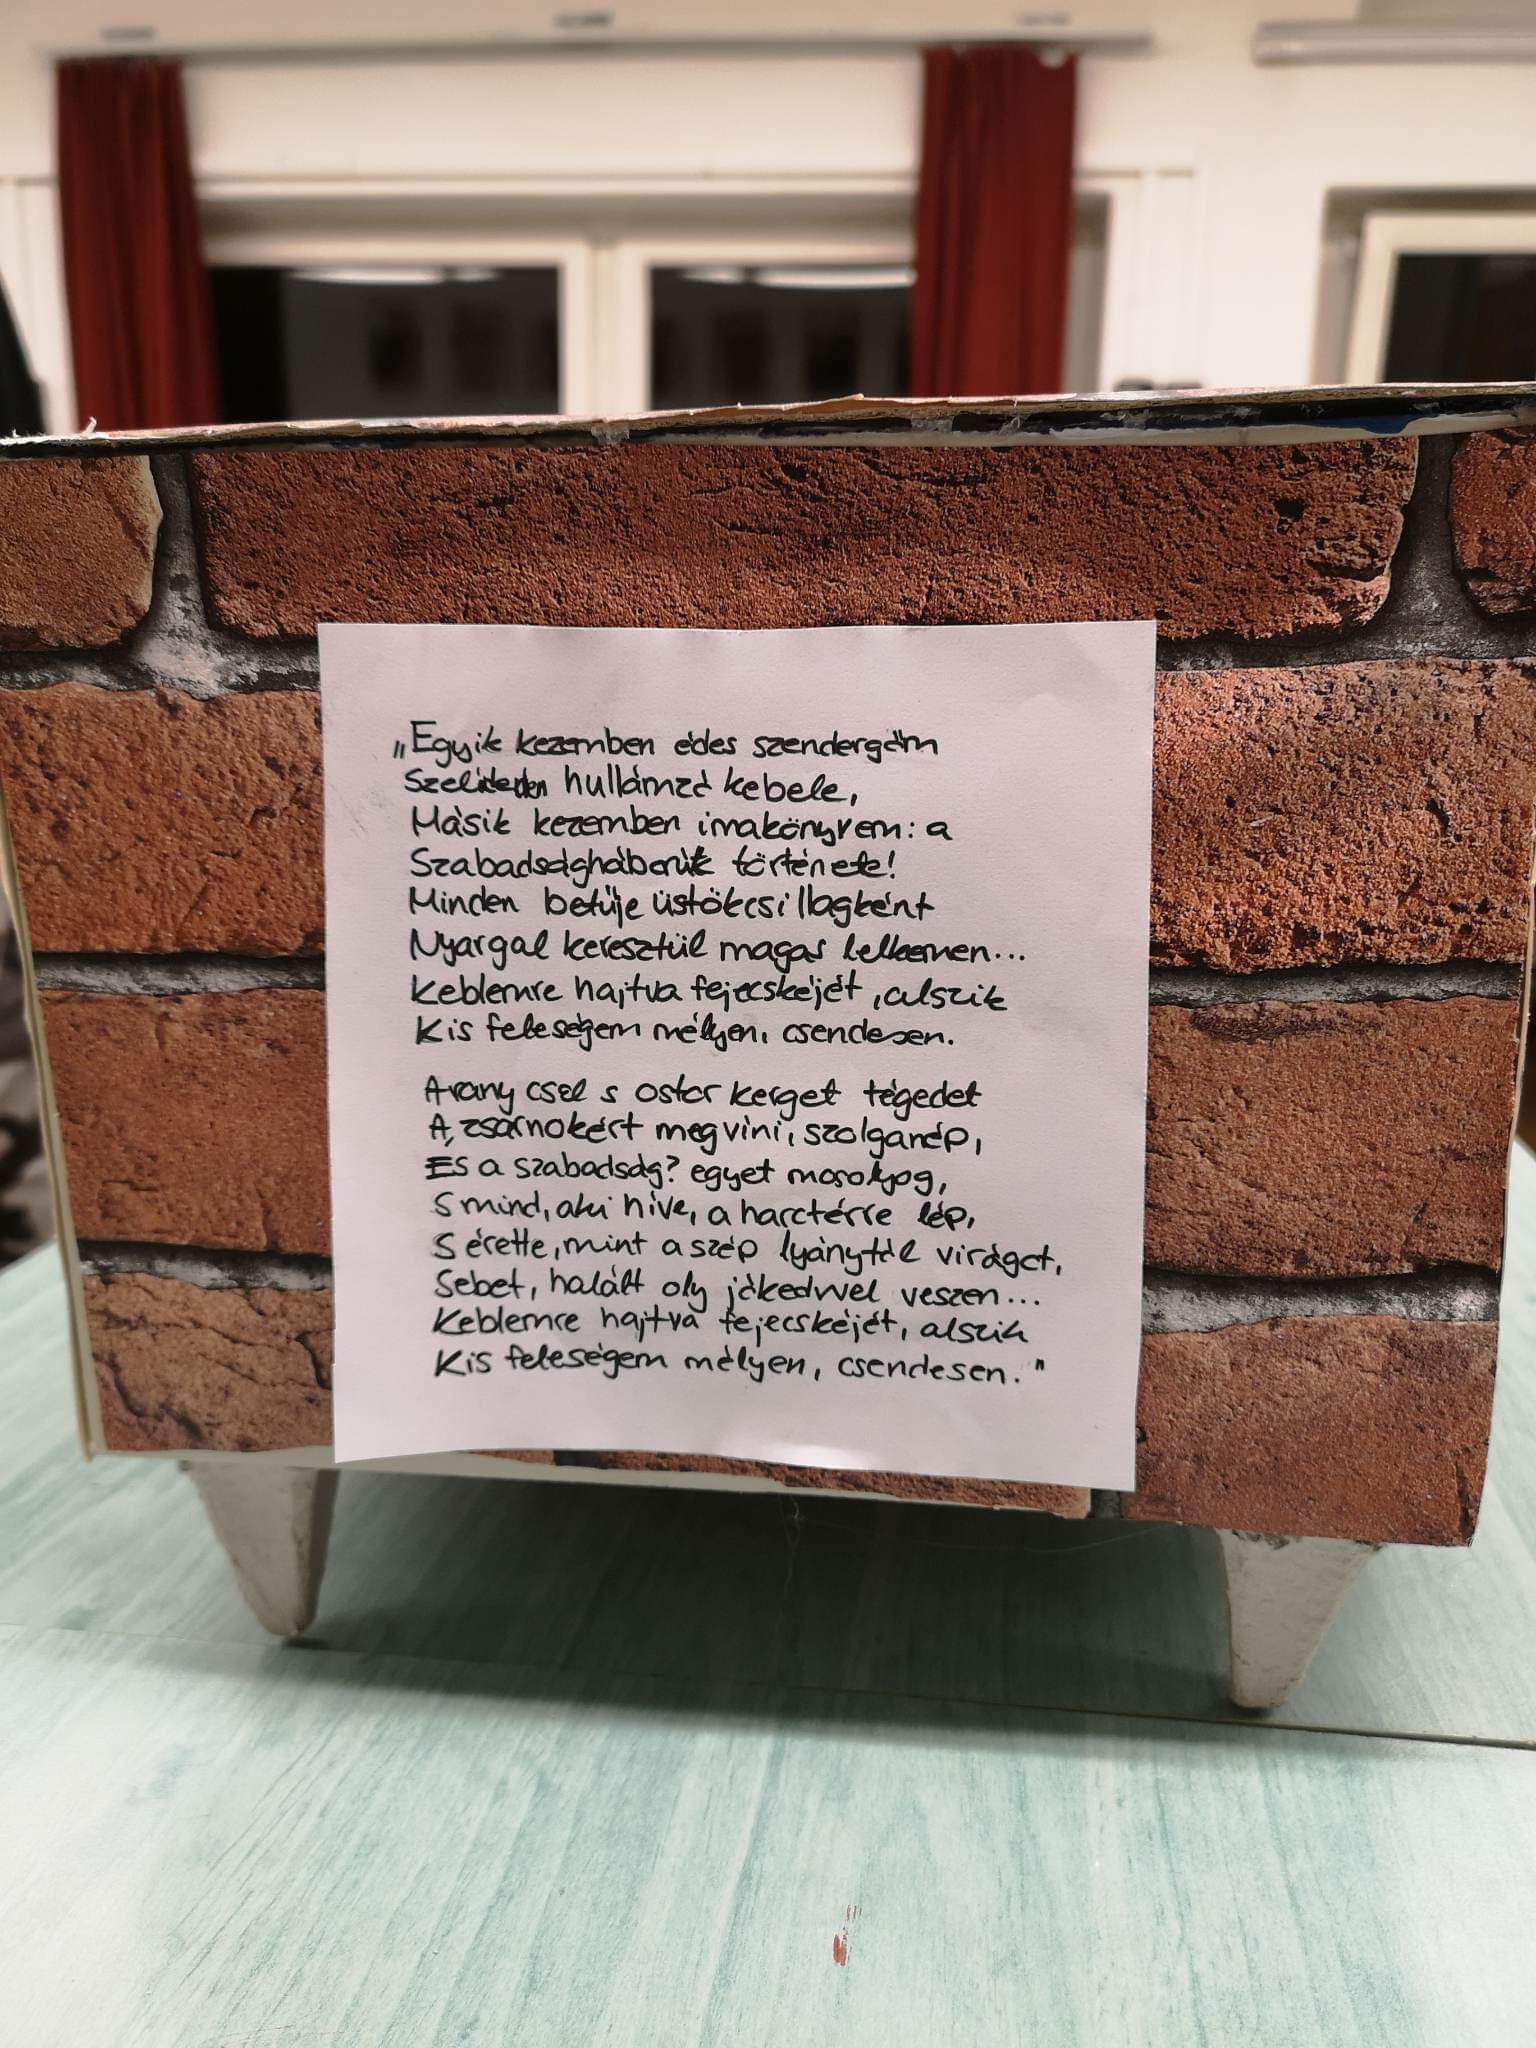 „Egyik kezemben édes szendergőm
Szelídeden hullámzó kebele,
Másik kezemben imakönyvem: a
Szabadságháborúk története!
Minden betűje üstökcsillagként
Nyargal keresztül magas lelkemen...
Keblemre hajtva fejecskéjét, alszik
Kis feleségem mélyen, csendesen.
Arany csel s ostor kerget tégedet
A zsarnokért megvíni, szolganép,
És a szabadság? egyet mosolyog,
S mind, aki híve, a harctérre lép,
S érette, mint a szép lyánytól virágot,
Sebet, halált oly jókedvvel veszen...
Keblemre hajtva fejecskéjét, alszik
Kis feleségem mélyen, csendesen."